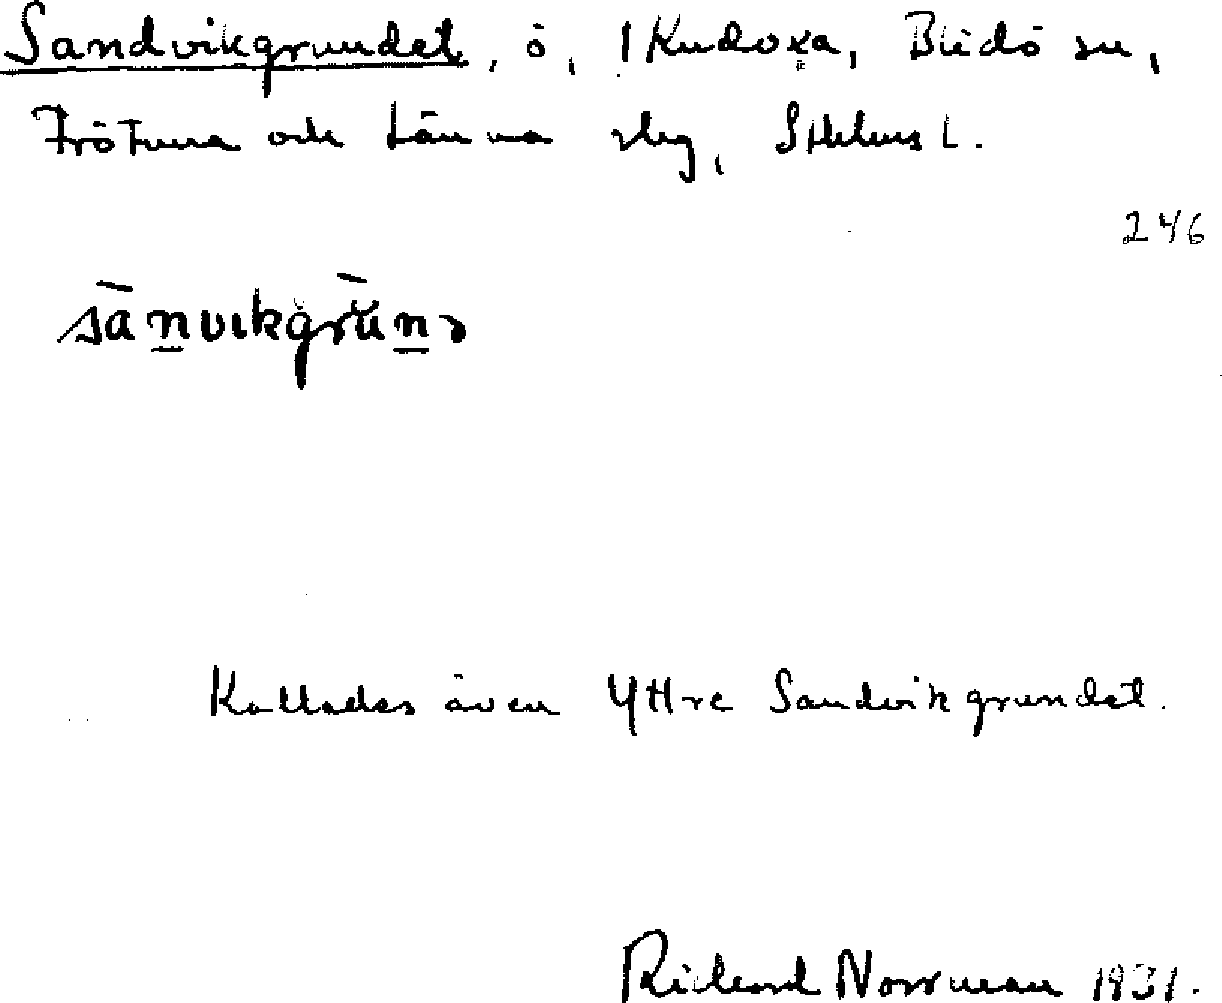 Sandvikgrundet, ö, 1 Kudoxa, Blidö sn,
Frötuna och Länna slg, Sthlms l.
246
sānvikgrūn
Kallades även Yttre Sandvikgrundet.
Richard Norrman 1931.